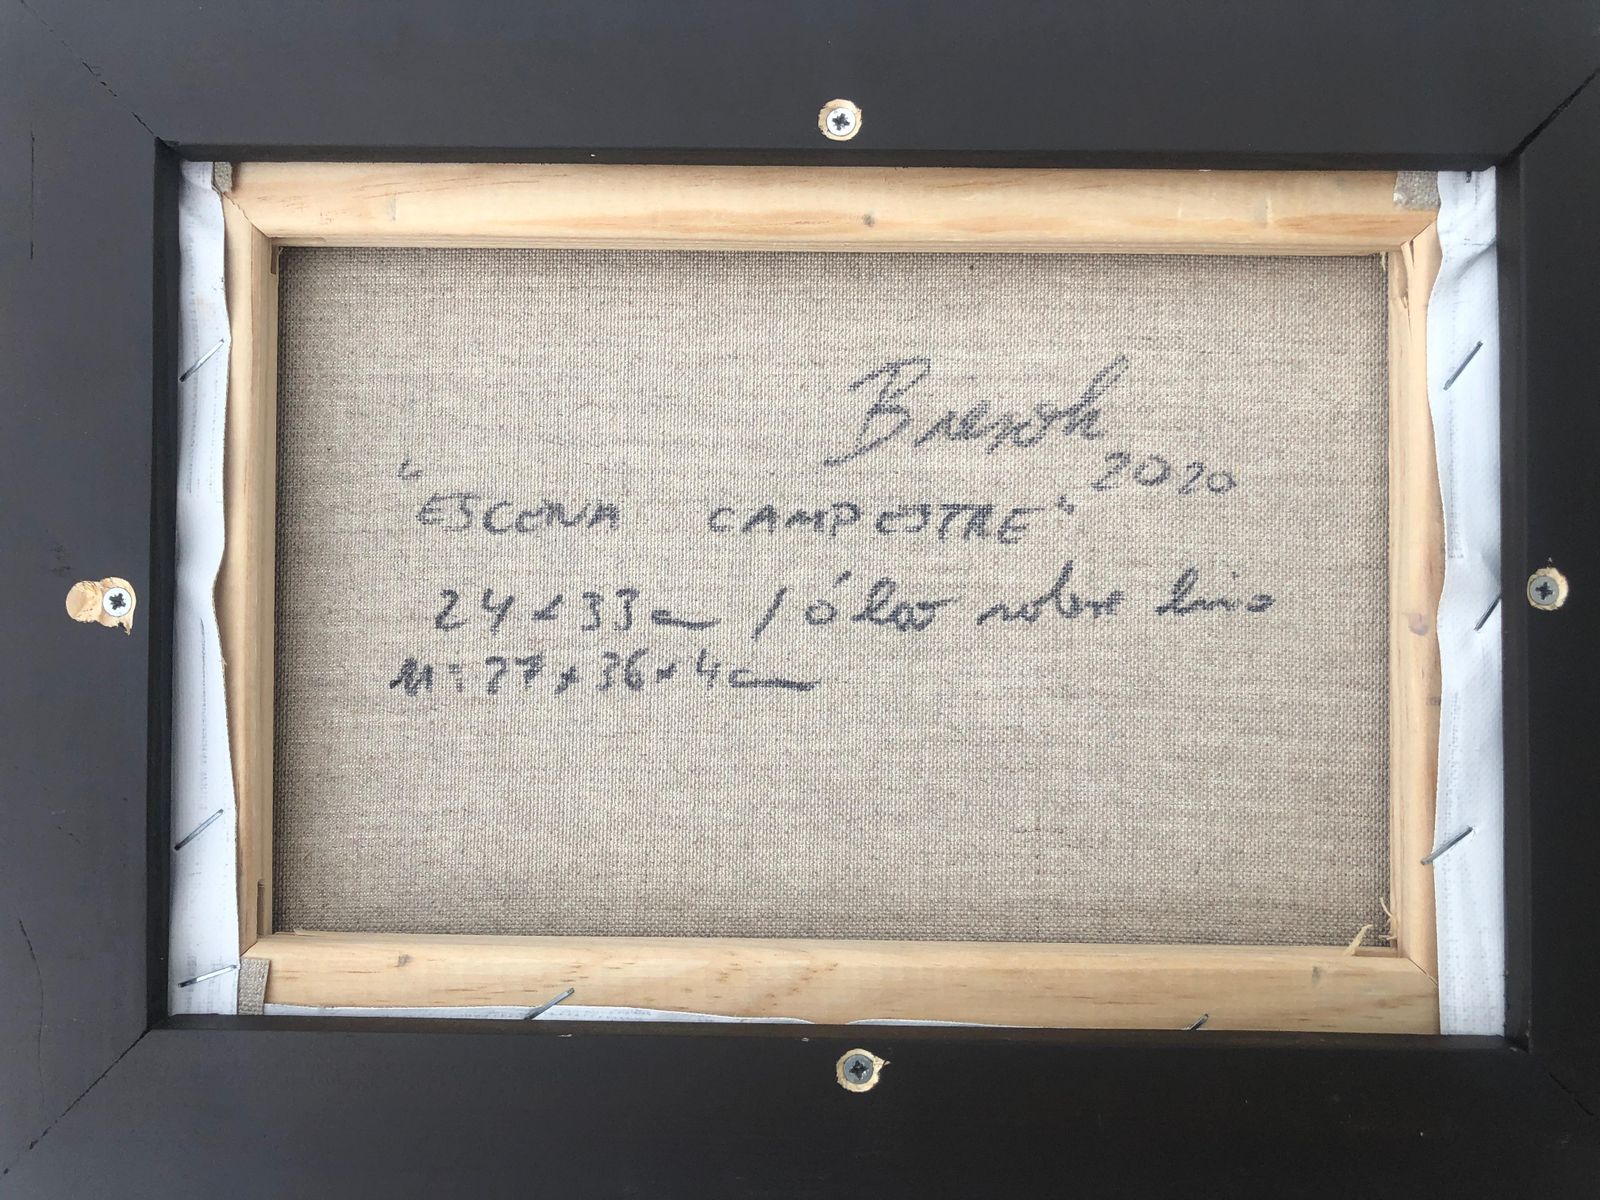 2020
"ESCENA CAMPESTRE"
24 x 33 cm / óleo sobre lino
M: 27 x 36 x 4 cm